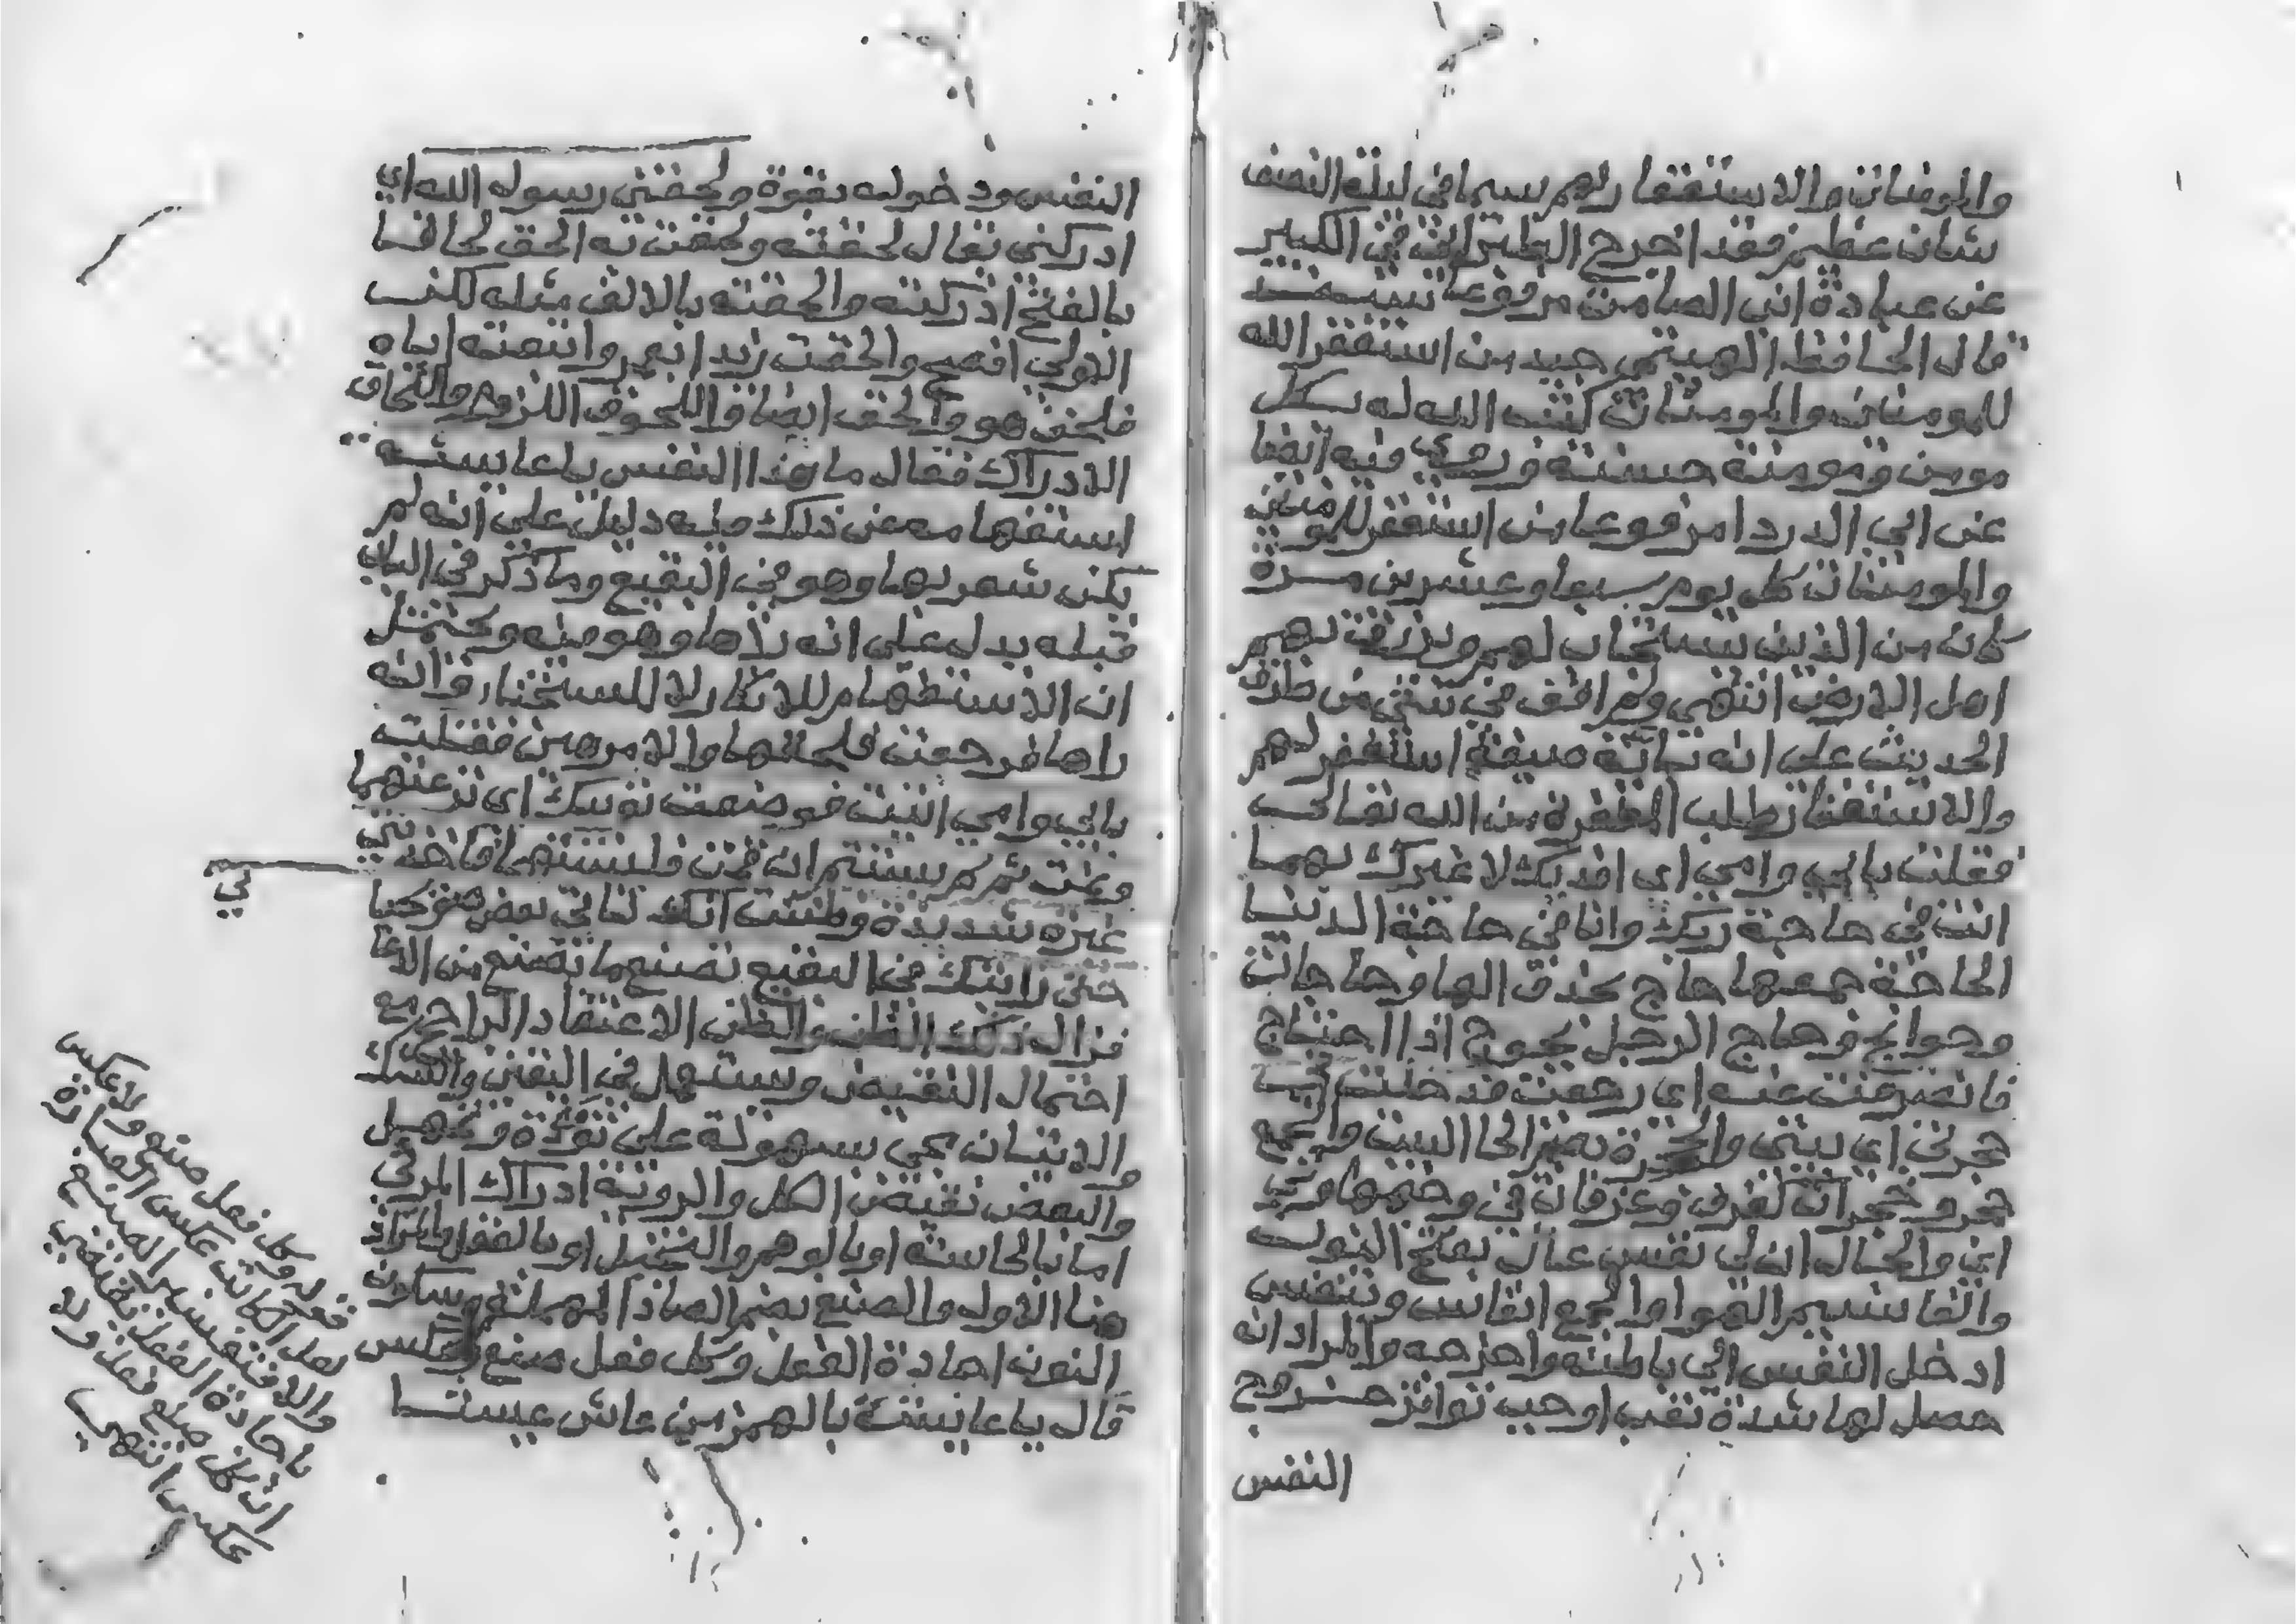 والمومنات والاستغفار لهم سيما في ليلة النصف
شان عظيم فقد اخرج الطبراني في الكبير
عن عبادة ابن الصامت مرفوعا بسند
قال الحافظ الهيتمي جيد من استغفر الله
للمومنين والمومنات كتب الله له بكل
مومن ومومنة حسنة وروي فيه ايضا
عن ابي الدردا مرفوعا من استغفر للمومنين
والمومنات كل يوم سبعا وعشرين مرة
كان من الذين يستجاب لهم ويرزق بهم
اهل الارض انتهى ولم اقف في شيء من طرق
الحديث على انه بأية صيغة استغفر لهم
والاستغفار طلب المغفرة من الله تعالى
فقلت بابي وامي اي افديك لا غيرك بهما
انت في حاجة ربك وانا في حاجة الدنيا
الحاجة جمعها حاج بحذف الها وحاجات
وحوايج وحاج الرجل يحوج اذا احتاج
فانصرفت عنه اي رجعت فدخلت
حجرتي اي بيتي والحجرة بضم الحا البيت والجمع
حجر وحجرات كغرف وغرفات في وجهها
اي والحال ان لي نفس عال بفتح النون
والفا نسيم الهوا والجمع انفاس وتنفس
ادخل النفس الى باطنه واخرجه والمراد انه
حصل لها شدة تعب اوجب تواتر خروج
النفس
النفس ودخوله بقوة ولحقني رسول الله اي
ادركني يقال لحقته ولحقت به الحق لحاقا
بالفتح ادركته والحقته بالالف مثله لكن
الاولى افصح والحقت زيدا بعمرو اتبعته اياه
فلحق هو والحق ايضا واللحوق اللزوم واللحاق
الادراك فقال ما هذا النفس يا عايشة
استفهامه عن ذلك منه دليل على انه لم
يكن شعر بها وهو في البقيع وما ذكر في الباب
قبله يدل على انه راها وهو منه ويحتمل
ان الاستفهام للانكار لا للاستخبار وانه
راها فرجعت فلحقها والامر هين فقلت
بابي وامي اتيت فوضعت ثوبيك اي نزعتهما
وعنك ثم لم تستتم ان قمت فلبستهما فاخذتني
غيرة شديدة وظننت انك تاتي بعض
حتى رايتك في البقيع تصنع ما تصنع من الدعا
فزال ذلك الظن والظن الاعتقاد الراجح مع
احتمال النقيض ويستعمل في اليقين والشك
والاتيان مجي بسهولة على تؤدة وتمهل
والبعض نقيض الكل والروية ادراك المرئي
اما بالحاسة او بالوهم والتخيل او بالعقل والمراد
هنا الاول والصنع بضم الصاد المهملة وسكون
النون اجادة الفعل وكل فعل صنع ولا عكس
قال يا عايشة بالهمز من عاش عيشا
ني
قوله وكل فعل صنع ولا عكس
لعل الكاتب عكس العبارة
والا فتفسير الصنع
باجادة الفعل يقتضي
ان كل صنع فعل ولا
عكس انتهى